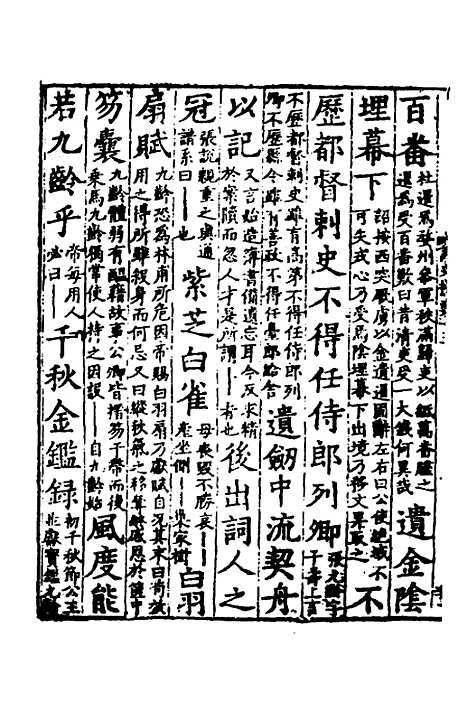 百番杜暹爲婺州參軍秩滿歸吏以紙萬番贐之暹爲受百番歎曰昔清吏受一大錢何異哉遺金陰
埋幕下詔按西突厥虜以金遺暹固辭左右曰公使絶域不可失戎心乃受焉陰埋幕下出境乃移文畀取之不
歷都督刺史不得任侍郎列卿張九齡字子壽上言
不歷都督刺史雖有高第不得任侍郎列卿不歷縣令雖有善政不得任臺郎給舍遺劒中流契舟
以記又言始造簿書備遺忘耳今反求精於案牘而忽人才是所謂——者也後出詞人之
冠張說親重之與通譜系曰——也紫芝白雀母喪毀不勝哀——産坐側——巢家樹白羽
扇賦九齡恐爲林甫所危因帝賜白羽扇乃獻賦自況其末曰苟效用之得所雖殺身而何忌又曰縱秋氣之移奪終感恩於篋中
笏囊九齡體弱有醞藉故事公卿皆搢笏于帶而後乘馬九齡獨常使人持之因設——自九齡始風度能
若九齡乎帝每用人必曰——千秋金鑑録初千秋節公王並獻寶鑑九